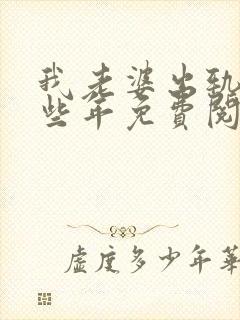 我老婆出轨
些年免費閱
虛度多少年華